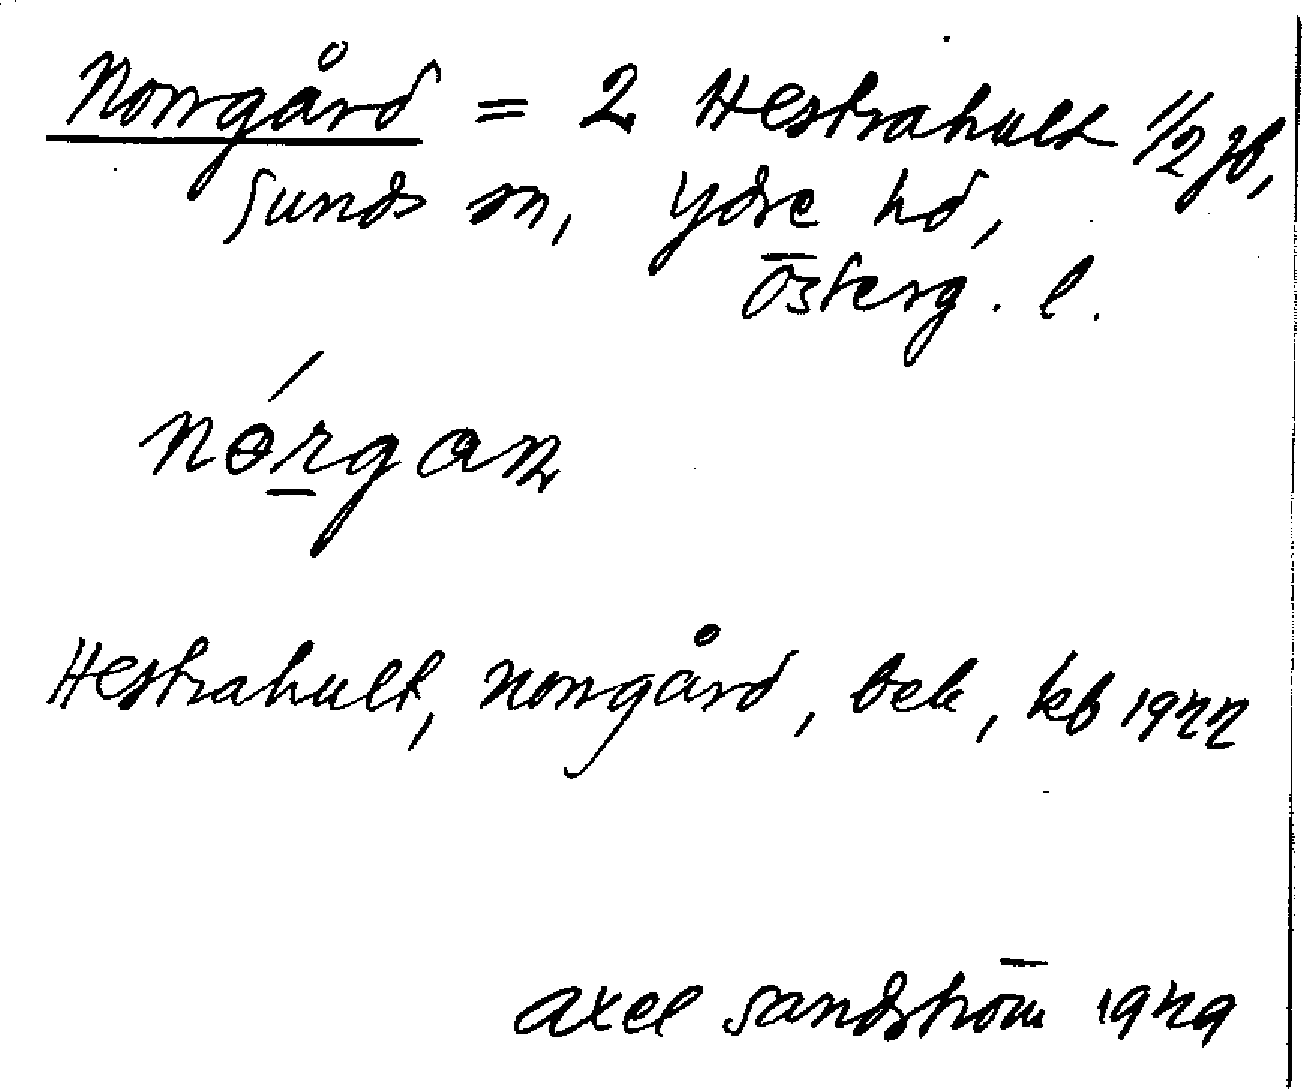 Norrgård = 2 Hestrahult 1/2 gb,
Sunds sn, Ydre hd,
Österg. l.
nɵ́rgan
Hestrahult, Norrgård, bek, kb 1977
Axel Sandström 1979